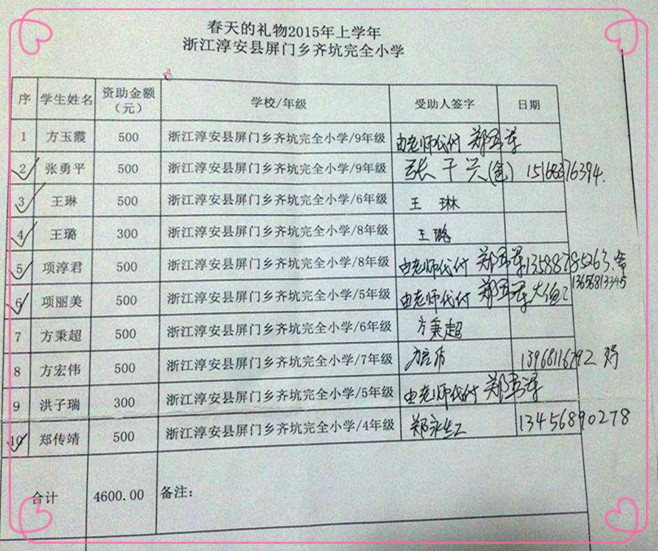 春天的礼物2015年上学年
浙江淳安县屏门乡齐坑完全小学
序 学生姓名 资助金额（元） 学校/年级 受助人签字 日期
1 方玉霞 500 浙江淳安县屏门乡齐坑完全小学/9年级 由老师代付
2 张勇平 500 浙江淳安县屏门乡齐坑完全小学/9年级 张
3 王琳 500 浙江淳安县屏门乡齐坑完全小学/6年级 王琳
4 王璐 300 浙江淳安县屏门乡齐坑完全小学/8年级 王璐
5 项淳君 500 浙江淳安县屏门乡齐坑完全小学/8年级 由老师代付
6 项丽美 500 浙江淳安县屏门乡齐坑完全小学/5年级 由老师代付
7 方秉超 500 浙江淳安县屏门乡齐坑完全小学/6年级 方秉超
8 方宏伟 500 浙江淳安县屏门乡齐坑完全小学/7年级
9 洪子瑞 300 浙江淳安县屏门乡齐坑完全小学/5年级 由老师代付
10 郑传靖 500 浙江淳安县屏门乡齐坑完全小学/4年级 13456890278
合计 4600.00 备注：